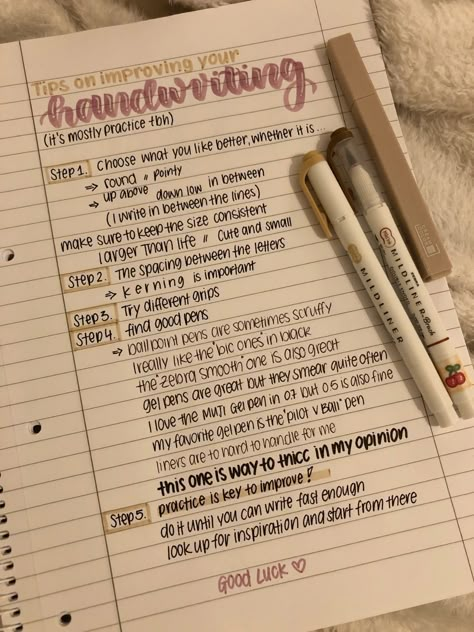 Tips on improving your
handwriting
(it's mostly practice tbh)
Step 1. Choose what you like better, whether it is...
→ round // pointy
→ up above down low in between
(I write in between the lines)
make sure to keep the size consistent
larger than life // cute and small
Step 2. The spacing between the letters
→ kerning is important
Step 3. Try different grips
Step 4. find good pens
→ ballpoint pens are sometimes scruffy
I really like the "bic" ones in black
the "zebra smooth" one is also great
gel pens are great but they smear quite often
I love the MUJI Gel pen in 07 but 05 is also fine
my favorite gel pen is the "pilot v Ball" pen
liners are to hard to handle for me
this one is way to thicc in my opinion
Step 5. practice is key to improve!
do it until you can write fast enough
look up for inspiration and start from there
Good Luck ♡
MILDLINER
MILDLINER Brush